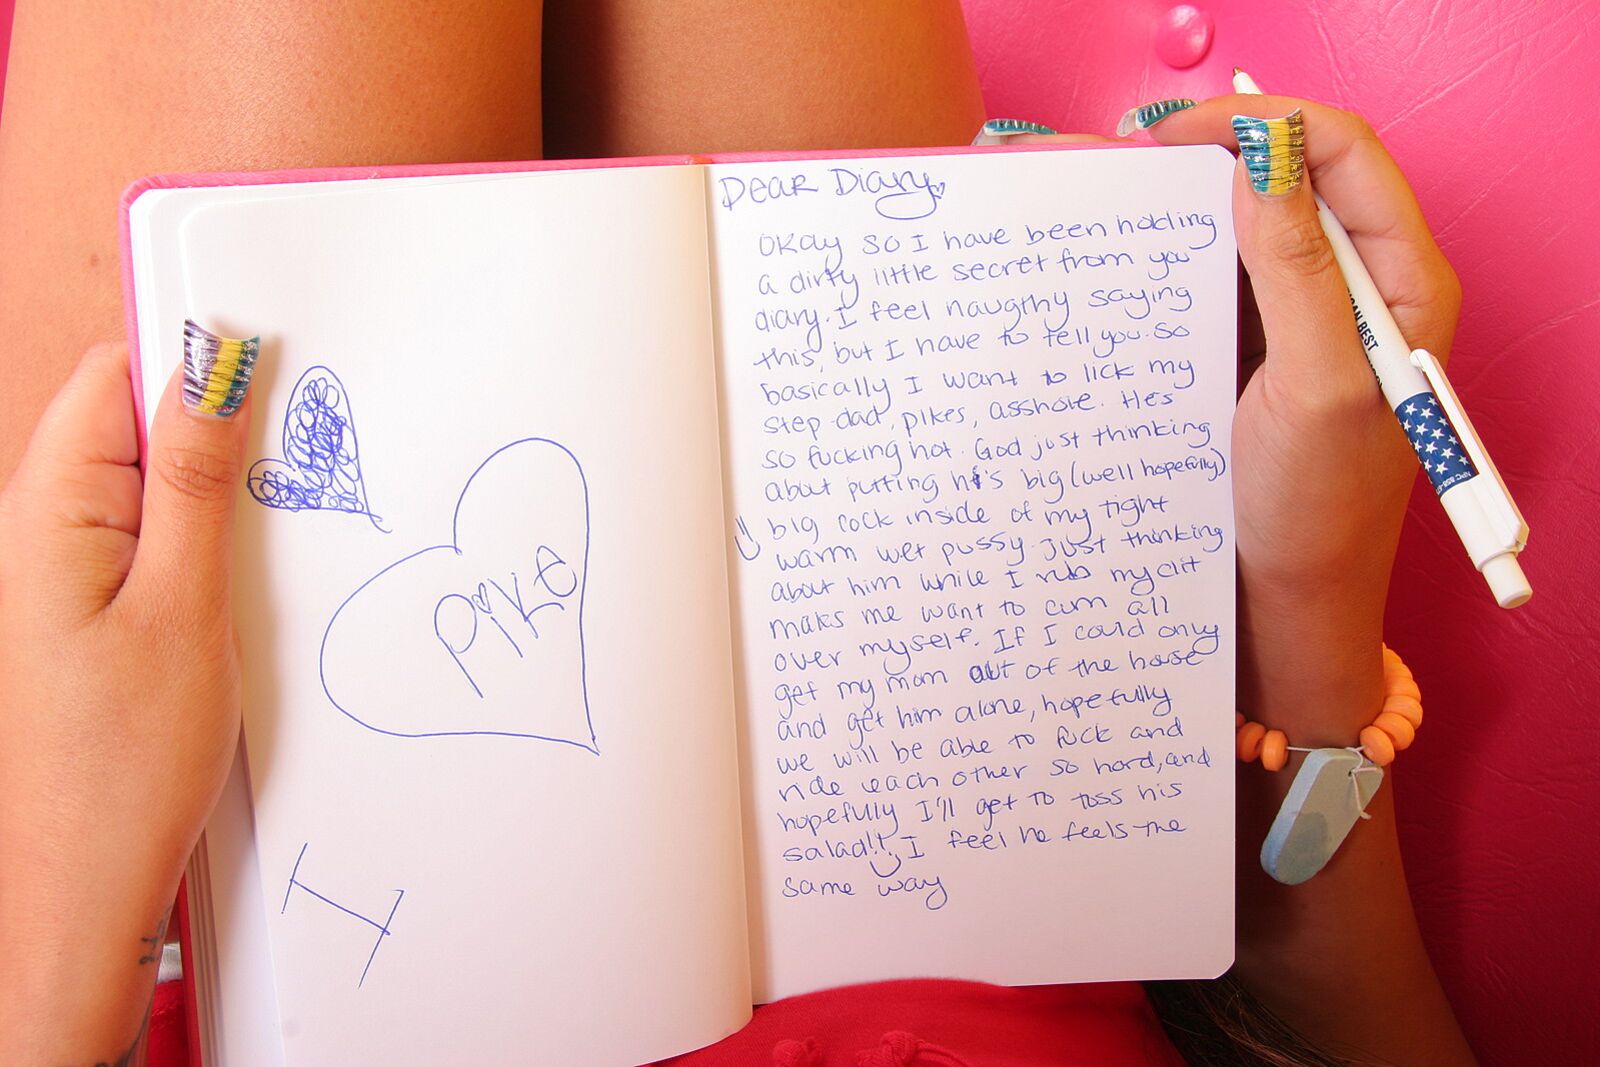 Dear Diary,
Okay so I have been holding
a dirty little secret from you
diary. I feel naugthy saying
this, but I have to tell you. So
basically I want to lick my
step-dad, pikes, asshole. He's
so fucking hot. God just thinking
about putting his big (well hopefully)
big cock inside of my tight
warm wet pussy. just thinking
about him while I rub my clit
makes me want to cum all
over myself. If I could only
get my mom out of the house
and get him alone, hopefully
we will be able to fuck and
ride each other so hard, and
hopefully I'll get to toss his
salad!! I feel he feels the
same way
Pike
I
CAN BEST